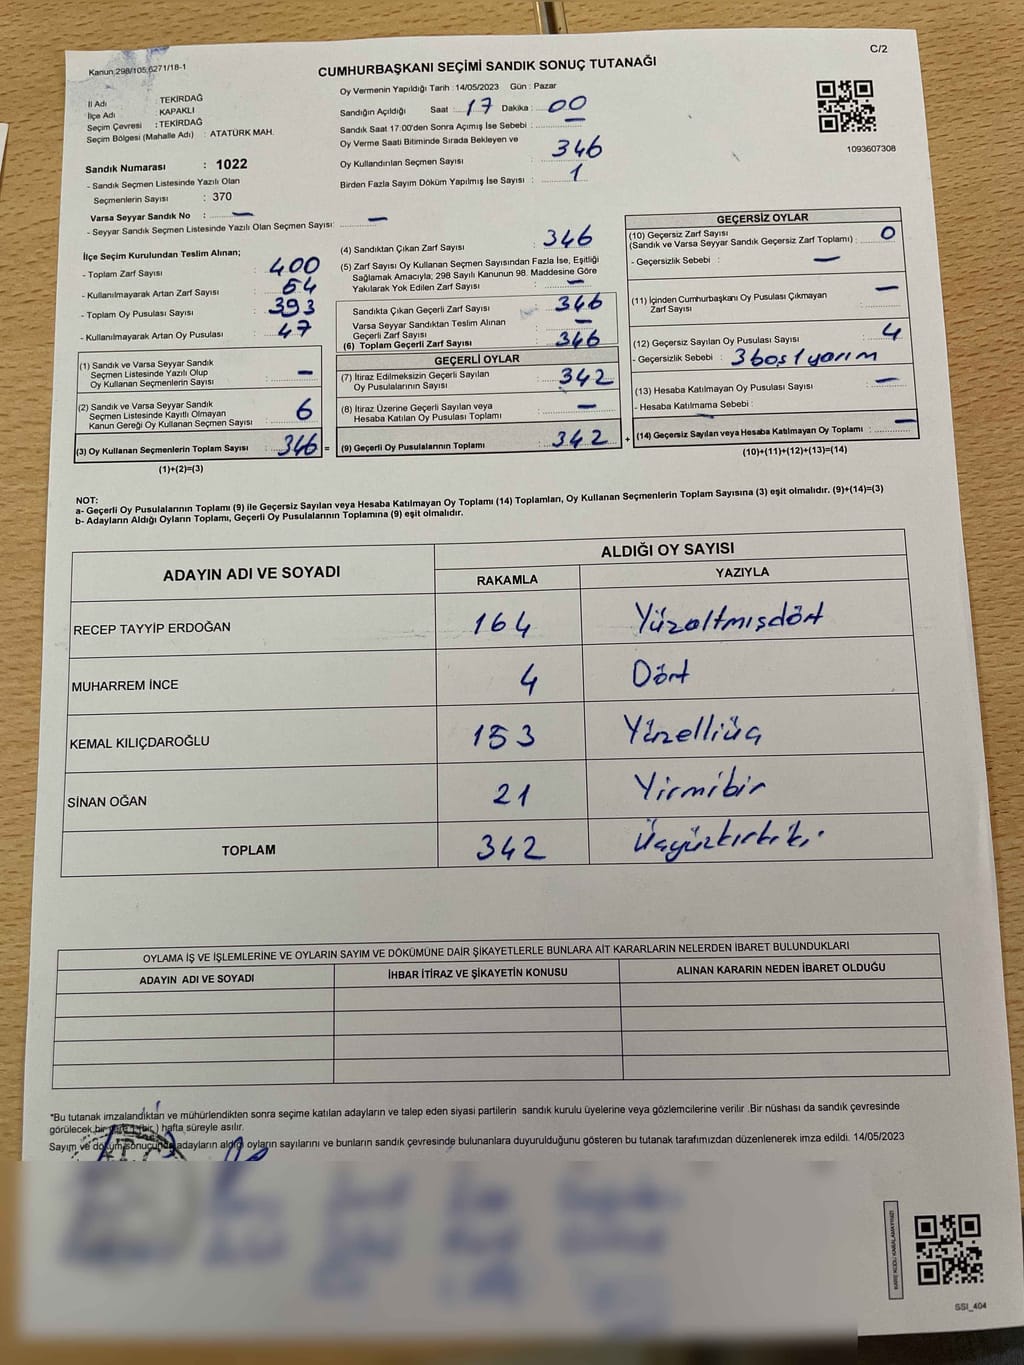 C/2
Kanun 298/105,6271/18-1
CUMHURBAŞKANI SEÇİMİ SANDIK SONUÇ TUTANAĞI
İl Adı : TEKİRDAĞ
İlçe Adı : KAPAKLI
Seçim Çevresi : TEKİRDAĞ
Seçim Bölgesi (Mahalle Adı) : ATATÜRK MAH.
Oy Vermenin Yapıldığı Tarih : 14/05/2023 Gün : Pazar
Sandığın Açıldığı Saat : 17 Dakika : 00
Sandık Saat 17:00'den Sonra Açımış İse Sebebi : —
Oy Verme Saati Bitiminde Sırada Bekleyen ve
Oy Kullandırılan Seçmen Sayısı : 346
Birden Fazla Sayım Döküm Yapılmış İse Sayısı : 1
1093607308
Sandık Numarası : 1022
- Sandık Seçmen Listesinde Yazılı Olan
Seçmenlerin Sayısı : 370
Varsa Seyyar Sandık No : —
- Seyyar Sandık Seçmen Listesinde Yazılı Olan Seçmen Sayısı: —
İlçe Seçim Kurulundan Teslim Alınan;
- Toplam Zarf Sayısı : 400
- Kullanılmayarak Artan Zarf Sayısı : 54
- Toplam Oy Pusulası Sayısı : 393
- Kullanılmayarak Artan Oy Pusulası : 47
(1) Sandık ve Varsa Seyyar Sandık
Seçmen Listesinde Yazılı Olup
Oy Kullanan Seçmenlerin Sayısı : —
(2) Sandık ve Varsa Seyyar Sandık
Seçmen Listesinde Kayıtlı Olmayan
Kanun Gereği Oy Kullanan Seçmen Sayısı : 6
(3) Oy Kullanan Seçmenlerin Toplam Sayısı : 346 =
(1)+(2)=(3)
(4) Sandıktan Çıkan Zarf Sayısı : 346
(5) Zarf Sayısı Oy Kullanan Seçmen Sayısından Fazla İse, Eşitliği
Sağlamak Amacıyla; 298 Sayılı Kanunun 98. Maddesine Göre
Yakılarak Yok Edilen Zarf Sayısı : —
Sandıkta Çıkan Geçerli Zarf Sayısı : 346
Varsa Seyyar Sandıktan Teslim Alınan
Geçerli Zarf Sayısı : —
(6) Toplam Geçerli Zarf Sayısı : 346
GEÇERLİ OYLAR
(7) İtiraz Edilmeksizin Geçerli Sayılan
Oy Pusulalarının Sayısı : 342
(8) İtiraz Üzerine Geçerli Sayılan veya
Hesaba Katılan Oy Pusulası Toplamı : —
(9) Geçerli Oy Pusulalarının Toplamı : 342 +
GEÇERSİZ OYLAR
(10) Geçersiz Zarf Sayısı
(Sandık ve Varsa Seyyar Sandık Geçersiz Zarf Toplamı) : 0
- Geçersizlik Sebebi : —
(11) İçinden Cumhurbaşkanı Oy Pusulası Çıkmayan
Zarf Sayısı : —
(12) Geçersiz Sayılan Oy Pusulası Sayısı : 4
- Geçersizlik Sebebi : 3 boş 1 yarım
(13) Hesaba Katılmayan Oy Pusulası Sayısı : —
- Hesaba Katılmama Sebebi : —
(14) Geçersiz Sayılan veya Hesaba Katılmayan Oy Toplamı : —
(10)+(11)+(12)+(13)=(14)
NOT:
a- Geçerli Oy Pusulalarının Toplamı (9) ile Geçersiz Sayılan veya Hesaba Katılmayan Oy Toplamı (14) Toplamları, Oy Kullanan Seçmenlerin Toplam Sayısına (3) eşit olmalıdır. (9)+(14)=(3)
b- Adayların Aldığı Oyların Toplamı, Geçerli Oy Pusulalarının Toplamına (9) eşit olmalıdır.
ADAYIN ADI VE SOYADI ALDIĞI OY SAYISI
RAKAMLA YAZIYLA
RECEP TAYYİP ERDOĞAN 164 Yüzaltmışdört
MUHARREM İNCE 4 Dört
KEMAL KILIÇDAROĞLU 153 Yüzelliüç
SİNAN OĞAN 21 Yirmibir
TOPLAM 342 Üçyüzkırkiki
OYLAMA İŞ VE İŞLEMLERİNE VE OYLARIN SAYIM VE DÖKÜMÜNE DAİR ŞİKAYETLERLE BUNLARA AİT KARARLARIN NELERDEN İBARET BULUNDUKLARI
ADAYIN ADI VE SOYADI İHBAR İTİRAZ VE ŞİKAYETİN KONUSU ALINAN KARARIN NEDEN İBARET OLDUĞU
*Bu tutanak imzalandıktan ve mühürlendikten sonra seçime katılan adayların ve talep eden siyasi partilerin sandık kurulu üyelerine veya gözlemcilerine verilir .Bir nüshası da sandık çevresinde
görülecek bir hafta süreyle asılır.
Sayım ve döküm sonucunda adayların aldığı oyların sayılarını ve bunların sandık çevresinde bulunanlara duyurulduğunu gösteren bu tutanak tarafımızdan düzenlenerek imza edildi. 14/05/2023
SSI_404